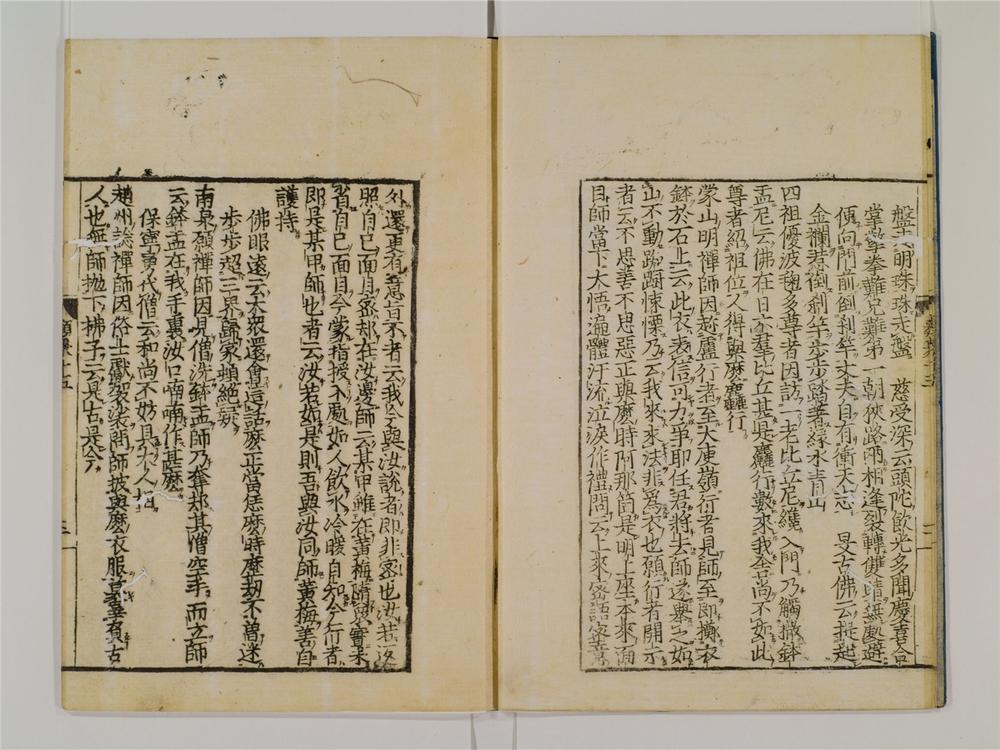 盤走明珠珠走盤　慈受深云頭陀飲光多聞慶喜合
掌擎拳難兄難弟一朝狹路兩相逢裂轉雙睛無處避
傾向門前倒刹竿丈夫自有衝天志　旻古佛云提起
金襴君倒刹竿步步踏著緑水青山
四祖優波毱多尊者因訪一老比丘尼纔入門乃觸撒鉢
盂尼云佛在日六羣比丘甚是麤行數來我舍尚不如此
尊者紹祖位人得與麼麤行
蒙山明禪師因趂盧行者至大庾嶺行者見師至即擲衣
鉢於石上云此衣表信可力爭耶任君將去師遂擧之如
山不動踟蹰悚慄乃云我來來法非爲衣也願行者開示
者云不思善不思惡正與麼時阿那箇是明上坐本來面
目師當下大悟遍體汗流泣淚作禮問云上來密語密意
外還更有意旨不者云我今與汝說者即非密也汝若返
照自己面目密却在汝邊師云某甲雖在黃梅隨衆實未
省自己面目今蒙指授入處如人飲水冷暖自知今行者
即是某甲師也者云汝若如是則吾與汝同師黃梅善自
護持
佛眼遠云大衆還會這話麼正當恁麼時歷劫不曾迷
步步超三界歸家頓絕疑
南泉願禪師因見僧洗鉢盂師乃奪却其僧空手而立師
云鉢盂在我手裏汝口喃喃作甚麼
保寧勇代僧云和尚不妨具大人相
趙州諗禪師因俗士獻袈裟問師披與麼衣服莫辜負古
人也無師抛下拂子云是古是今